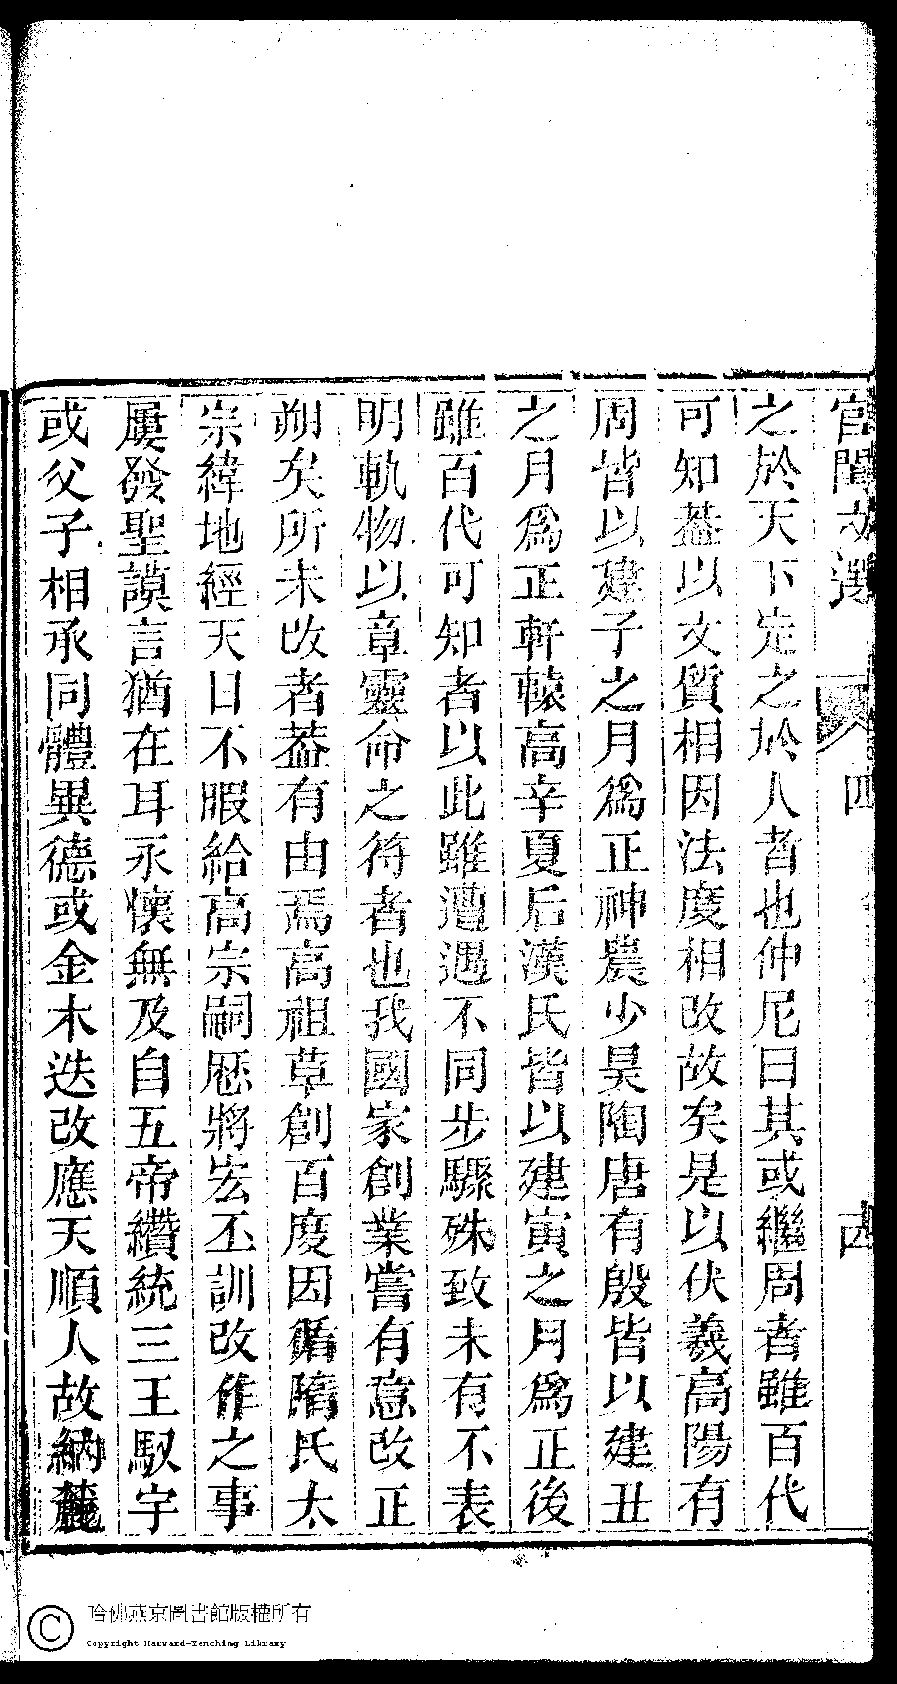 宫閨文選
四
古
之於天下定之於人者也仲尼曰其或繼周者雖百代
可知葢以文質相因法度相改故矣是以伏羲高陽有
周皆以建子之月爲正神農少昊陶唐有殷皆以建丑
之月爲正軒轅高辛夏后漢氏皆以建寅之月爲正後
雖百代可知者以此雖遭遇不同步驟殊致未有不表
明軌物以章靈命之符者也我國家創業嘗有意改正
朔矣所未改者葢有由焉高祖草創百度因循隋氏太
宗緯地經天日不暇給高宗嗣厯將宏丕訓改作之事
屢發聖謨言猶在耳永懷無及自五帝纘統三王馭宇
或父子相承同體異德或金木迭改應天順人故納麓
哈佛燕京圖書館版權所有
Copyright Harvard-Yenching Library